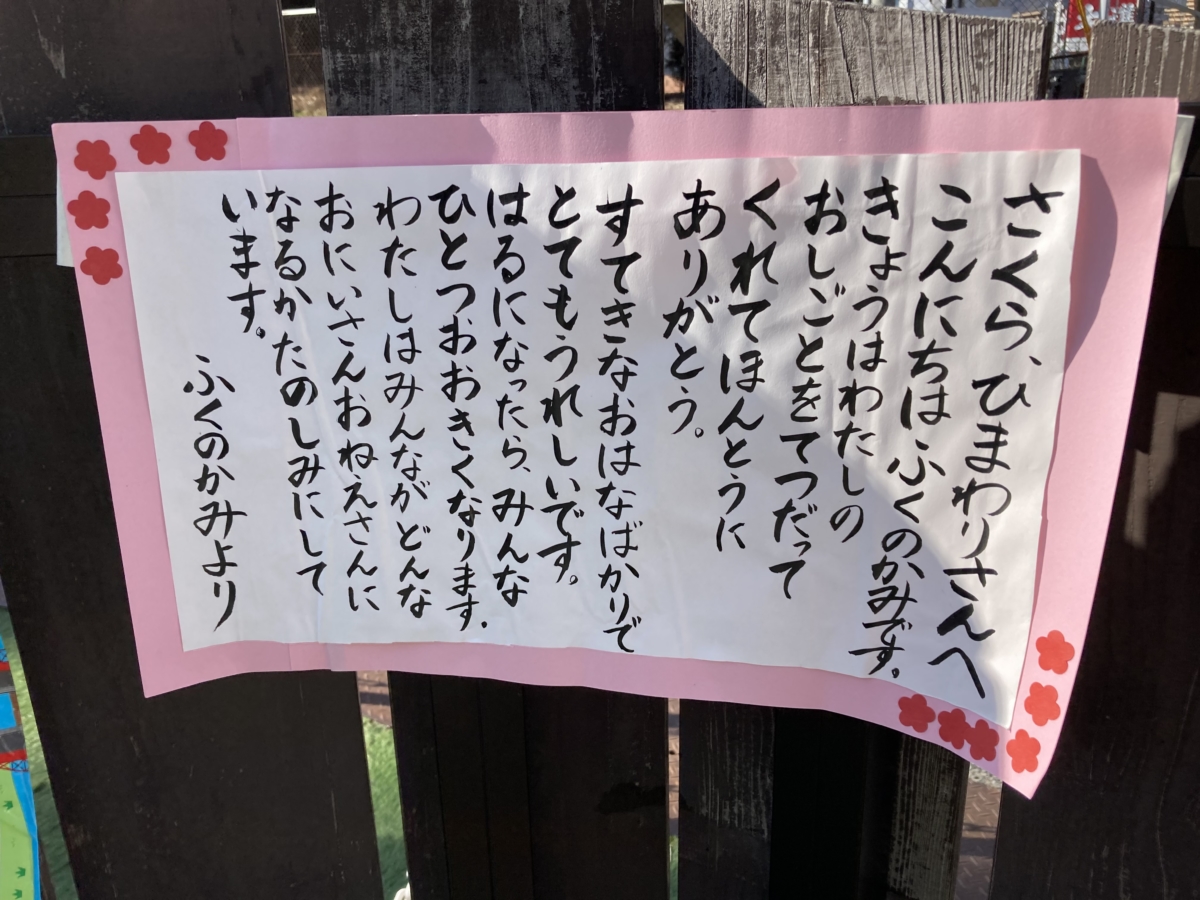 さくら、ひまわりさんへ
こんにちはふくのかみです。
きょうはわたしの
おしごとをてつだって
くれてほんとうに
ありがとう。
すてきなおはなばかりで
とてもうれしいです。
はるになったら、みんな
ひとつおおきくなります.
わたしはみんながどんな
おにいさんおねえさんに
なるかたのしみにして
います。
ふくのかみより